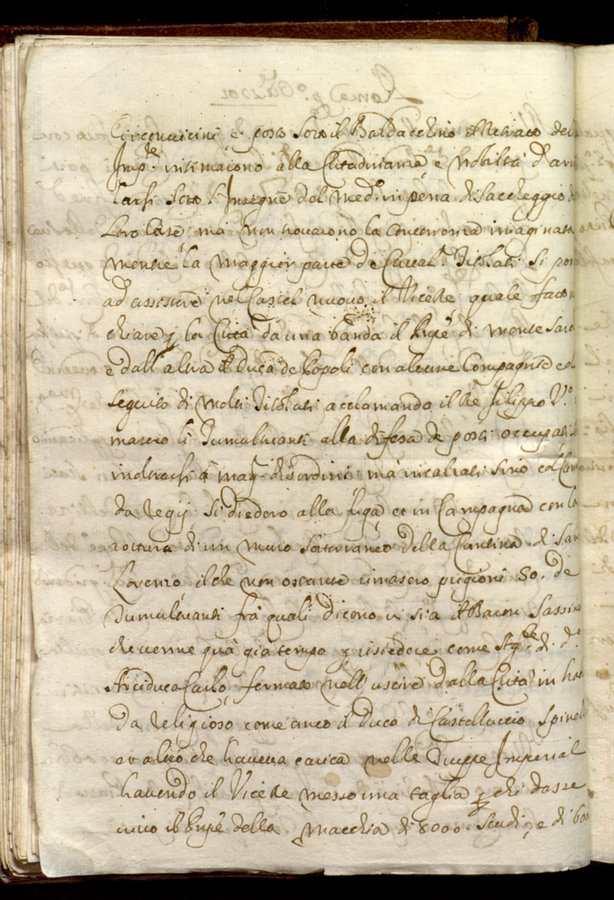 Circonuicini e posto sotto il Baldacchino il Ritratto del
Imp.re intimaiono alla Cittadinanza e Nobiltà d'arro
larsi sotto l'Insegne del med.o in pena di saccheggio de
loro case: ma non trouarono la concorrenza imaginata
mentre la maggior parte de Caual.ri Titolati si portò
ad assistere nel Castel nuouo il ViceRe quale fatto
chiare p la Città da una banda il Prpe di monte Sarc
e dall'altra il Duca de Popoli con alcune Compagnie e col
seguito di molti Titolati acclamando il Rè Filippo V.o
masero li Tumultuanti alla difesa de posti occupati
inoltrarsi à mag.ri disordini mà incalzati sino col Can
da Regij si diedero alla fuga et in Campagna con la
rottura di un muro sotterraneo della Cantina di San
Lorenzo il che non ostante rimasero prigioni 50. de
Tumultuanti frà quali dicono ui sia il Baron Sassin
che uenne quà già tempo p risiedere come Ag.te di d.o
Arciduca Carlo, fermato nell'uscire dalla Città in ha
da Religioso come anco il Duca di Castelluccio Spinel
et altro che haueua carica nelle Truppe Imperial
hauendo il ViceRe messo una taglia p chi dasse
uiuo il Prpe della Macchia di 8000 Scudi, e di 600